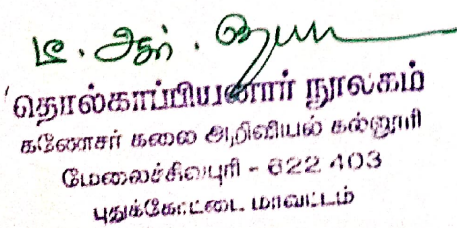 டி. ஆர்.
'தொல்காப்பியனார் நூலகம்
கணேசர் கலை அறிவியல் கல்லூரி
மேலைச்சிவபுரி - 622 403
புதுக்கோட்டை மாவட்டம்